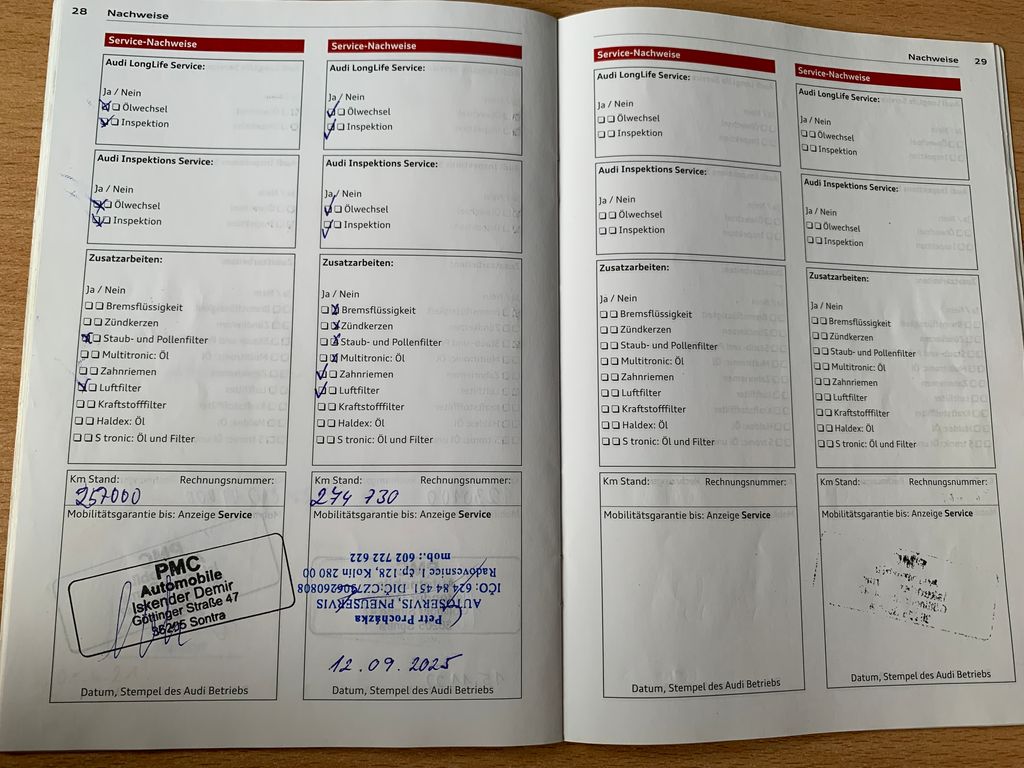 28 Nachweise
Service-Nachweise
Audi LongLife Service:
Ja / Nein
Ölwechsel
Inspektion
Audi Inspektions Service:
Ja / Nein
Ölwechsel
Inspektion
Zusatzarbeiten:
Ja / Nein
Bremsflüssigkeit
Zündkerzen
Staub- und Pollenfilter
Multitronic: Öl
Zahnriemen
Luftfilter
Kraftstofffilter
Haldex: Öl
S tronic: Öl und Filter
Km Stand: Rechnungsnummer:
257000
Mobilitätsgarantie bis: Anzeige Service
PMC
Automobile
Iskender Demir
Göttinger Straße 47
36205 Sontra
Datum, Stempel des Audi Betriebs
Service-Nachweise
Audi LongLife Service:
Ja / Nein
Ölwechsel
Inspektion
Audi Inspektions Service:
Ja / Nein
Ölwechsel
Inspektion
Zusatzarbeiten:
Ja / Nein
Bremsflüssigkeit
Zündkerzen
Staub- und Pollenfilter
Multitronic: Öl
Zahnriemen
Luftfilter
Kraftstofffilter
Haldex: Öl
S tronic: Öl und Filter
Km Stand: Rechnungsnummer:
274 730
Mobilitätsgarantie bis: Anzeige Service
Petr Procházka
AUTOSERVIS, PNEUSERVIS
IČO: 624 84 451 DIČ:CZ7906260808
Radovesnice I, čp.128, Kolín 280 00
mob.: 602 722 622
12.09.2025
Datum, Stempel des Audi Betriebs
Nachweise 29
Service-Nachweise
Audi LongLife Service:
Ja / Nein
Ölwechsel
Inspektion
Audi Inspektions Service:
Ja / Nein
Ölwechsel
Inspektion
Zusatzarbeiten:
Ja / Nein
Bremsflüssigkeit
Zündkerzen
Staub- und Pollenfilter
Multitronic: Öl
Zahnriemen
Luftfilter
Kraftstofffilter
Haldex: Öl
S tronic: Öl und Filter
Km Stand: Rechnungsnummer:
Mobilitätsgarantie bis: Anzeige Service
Datum, Stempel des Audi Betriebs
Service-Nachweise
Audi LongLife Service:
Ja / Nein
Ölwechsel
Inspektion
Audi Inspektions Service:
Ja / Nein
Ölwechsel
Inspektion
Zusatzarbeiten:
Ja / Nein
Bremsflüssigkeit
Zündkerzen
Staub- und Pollenfilter
Multitronic: Öl
Zahnriemen
Luftfilter
Kraftstofffilter
Haldex: Öl
S tronic: Öl und Filter
Km Stand: Rechnungsnummer:
Mobilitätsgarantie bis: Anzeige Service
Datum, Stempel des Audi Betriebs